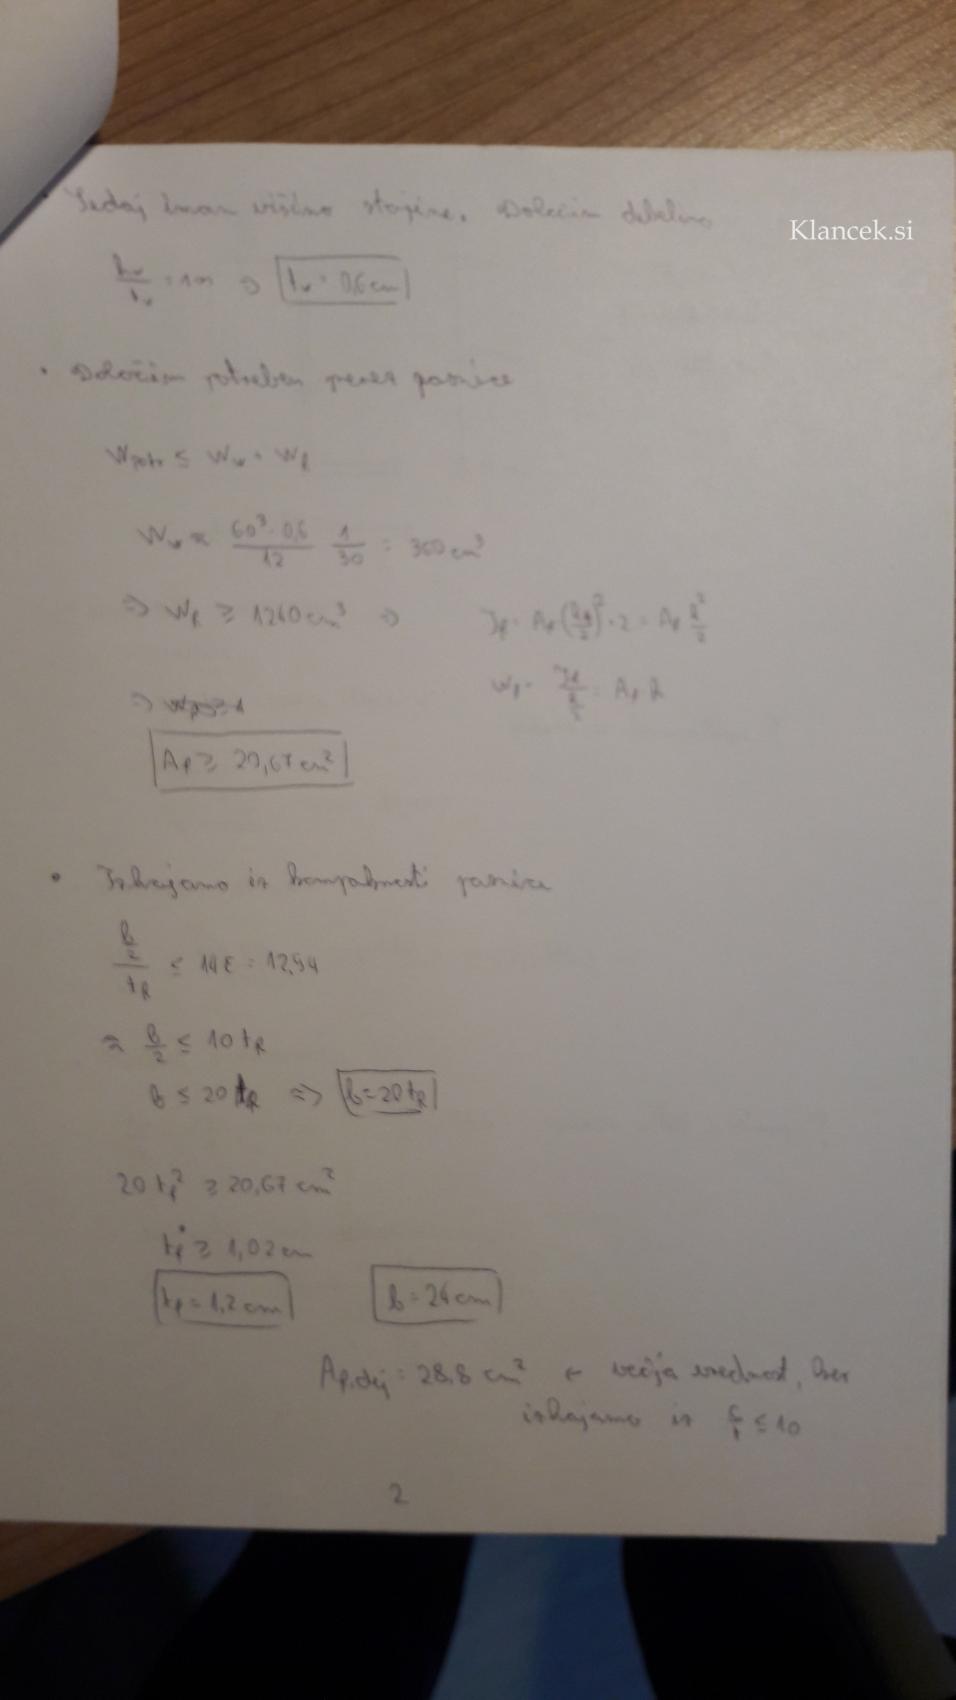 Klancek.si
• Sedaj imam višino stojine. Določim debelino
hw/tw = 100 ⇒ tw = 0,6 cm
• Določim potreben prerez pasnice
Wpotr ≤ Ww + Wf
Ww ≈ 60³·0,6/12 1/30 = 360 cm³
⇒ Wf ≥ 1240 cm³ ⇒
If = Af (h/2)²·2 = Af h²/2
Wf = If/(h/2) = Af h
Af ≥ 20,67 cm²
• Izhajamo iz kompaktnosti pasnice
(b/2)/tf ≤ 14ε = 12,94
≈ b/2 ≤ 10 tf
b ≤ 20 tf ⇒ b = 20 tf
20 tf² ≥ 20,67 cm²
tf ≥ 1,02 cm
tf = 1,2 cm b = 24 cm
Af,dej = 28,8 cm² ← večja vrednost, ker
izhajamo iz c/t ≤ 10
2